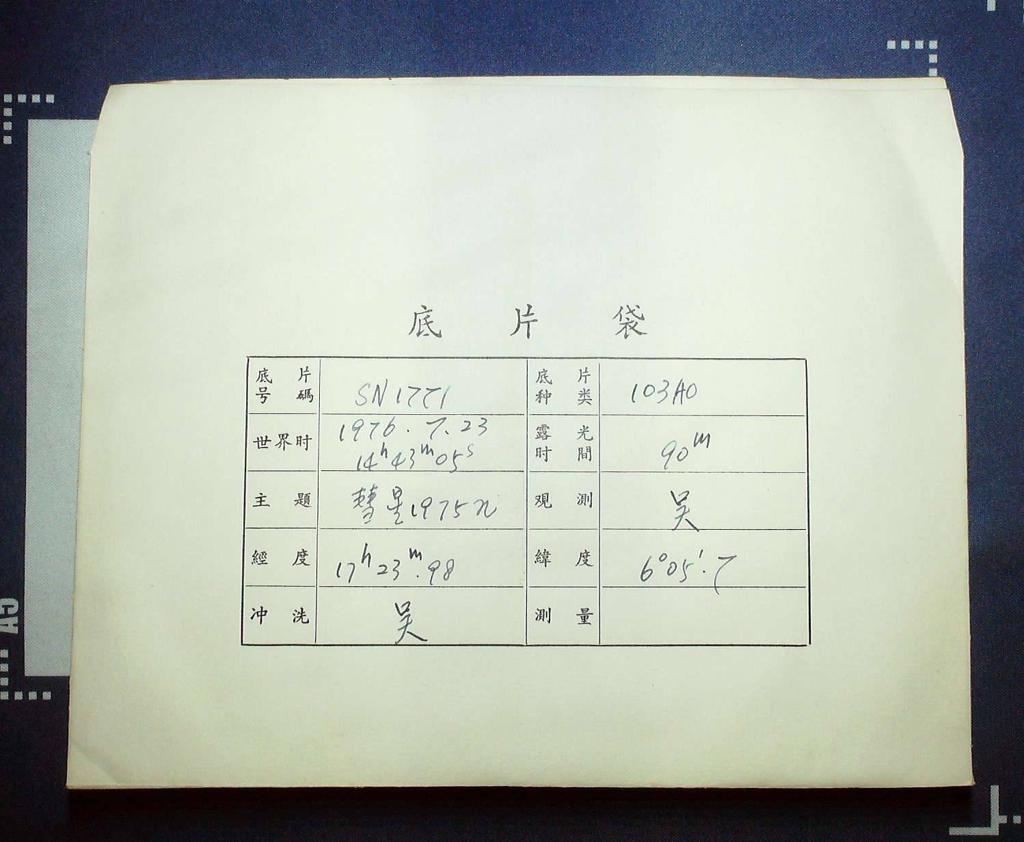 底片袋
底片号碼 SN1771 底片种类 103AO
世界时 1976.7.23 14h43m05s 露光时間 90m
主題 彗星1975n 观測 吴
經度 17h23m.98 緯度 6°05'.7
冲洗 吴 測量
A5